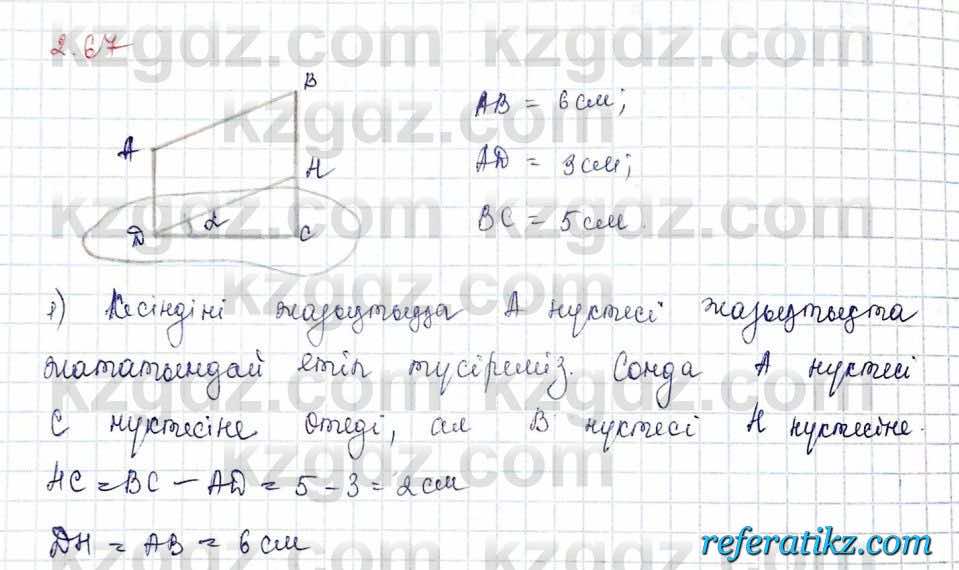 2.67
B
A
H
D
α
C
AB = 6 см;
AD = 3 см;
BC = 5 см.
1) Кесіндіні жазықтыққа A нүктесі жазықтықта
жататындай етіп түсіреміз. Сонда A нүктесі
C нүктесіне өтеді, ал B нүктесі H нүктесіне.
HC = BC - AD = 5 - 3 = 2 см
DH = AB = 6 см
kzgdz.com
referatikz.com